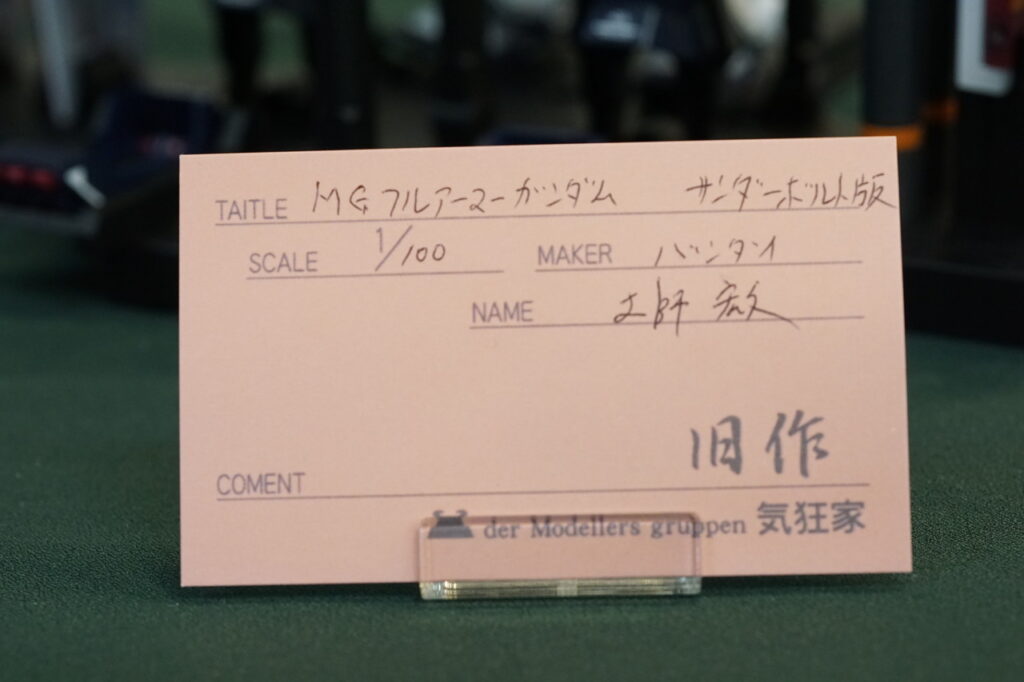 TAITLE MG フルアーマーガンダム サンダーボルト版
SCALE 1/100 MAKER バンダイ
NAME 土師 宏文
旧作
COMENT
der Modellers gruppen 気狂家